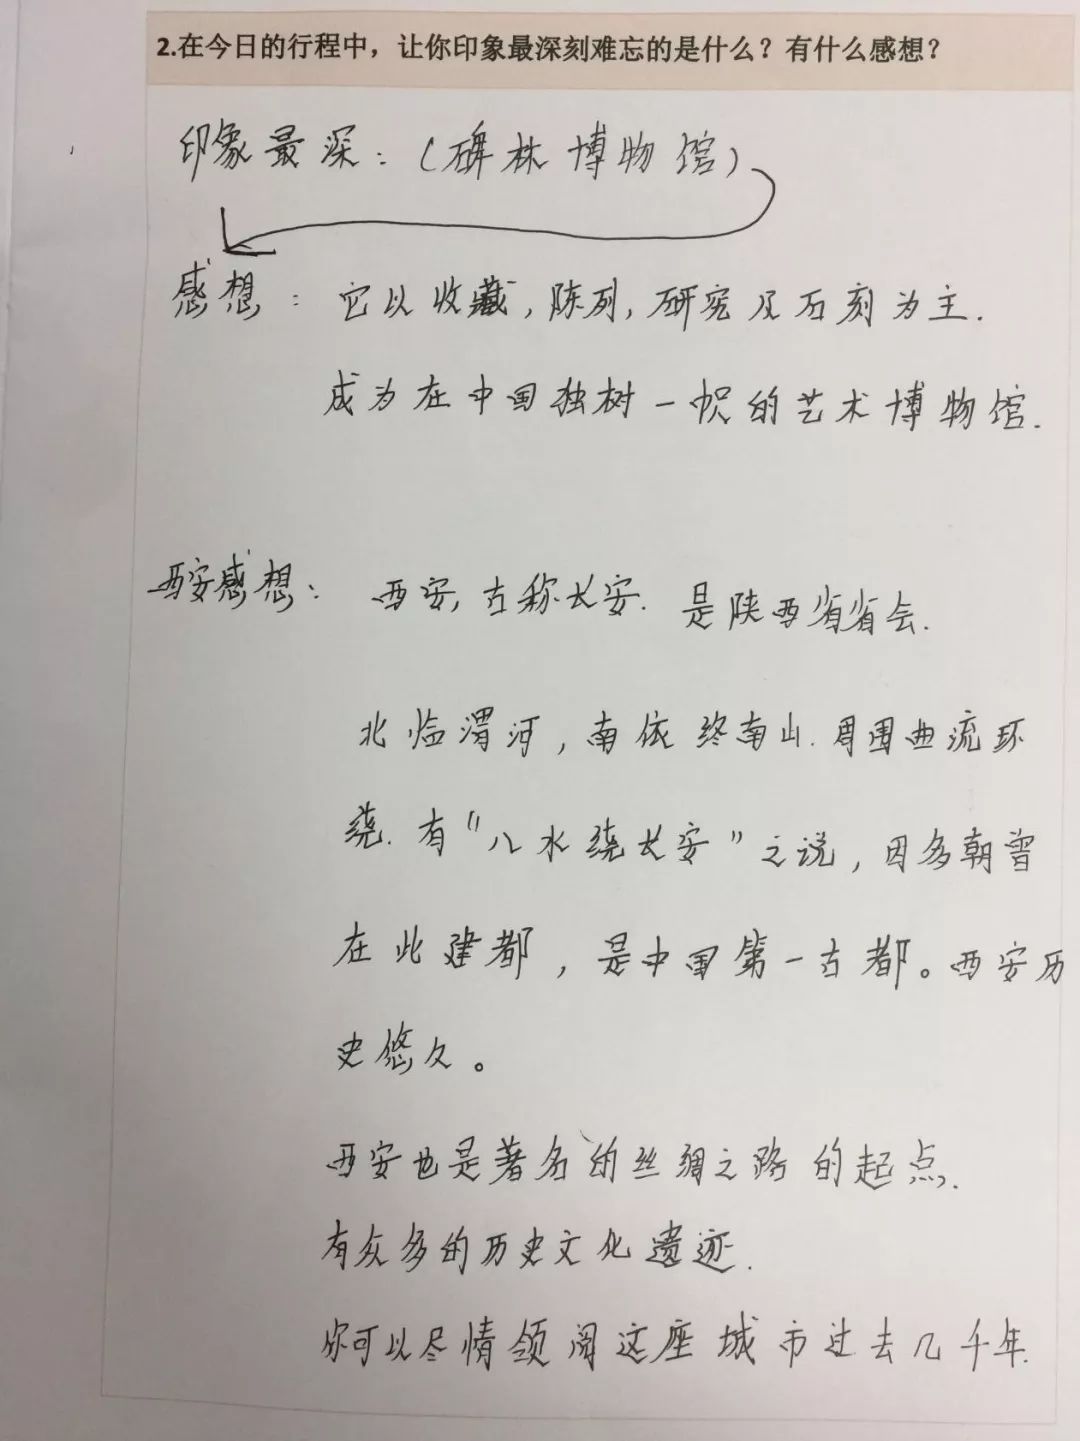 2.在今日的行程中，让你印象最深刻难忘的是什么？有什么感想？
印象最深：（碑林博物馆）
感想：它以收藏，陈列，研究及石刻为主.
成为在中国独树一帜的艺术博物馆.
西安感想：西安，古称长安.是陕西省省会.
北临渭河，南依终南山.周围曲流环
绕.有“八水绕长安”之说，因多朝曾
在此建都，是中国第一古都。西安历
史悠久。
西安也是著名的丝绸之路的起点.
有众多的历史文化遗迹.
你可以尽情领阅这座城市过去几千年.